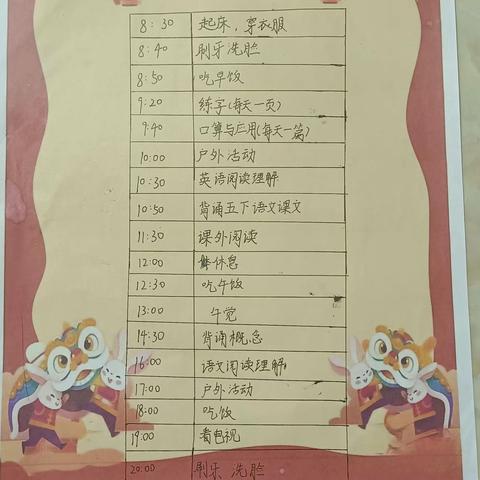 8:30 起床，穿衣服
8:40 刷牙洗脸
8:50 吃早饭
9:20 练字(每天一页)
9:40 口算与应用(每天一篇)
10:00 户外活动
10:30 英语阅读理解
10:50 背诵五下语文课文
11:30 课外阅读
12:00 休息
12:30 吃午饭
13:00 午觉
14:30 背诵概念
16:00 语文阅读理解
17:00 户外活动
18:00 吃饭
19:00 看电视
20:00 刷牙 洗脸